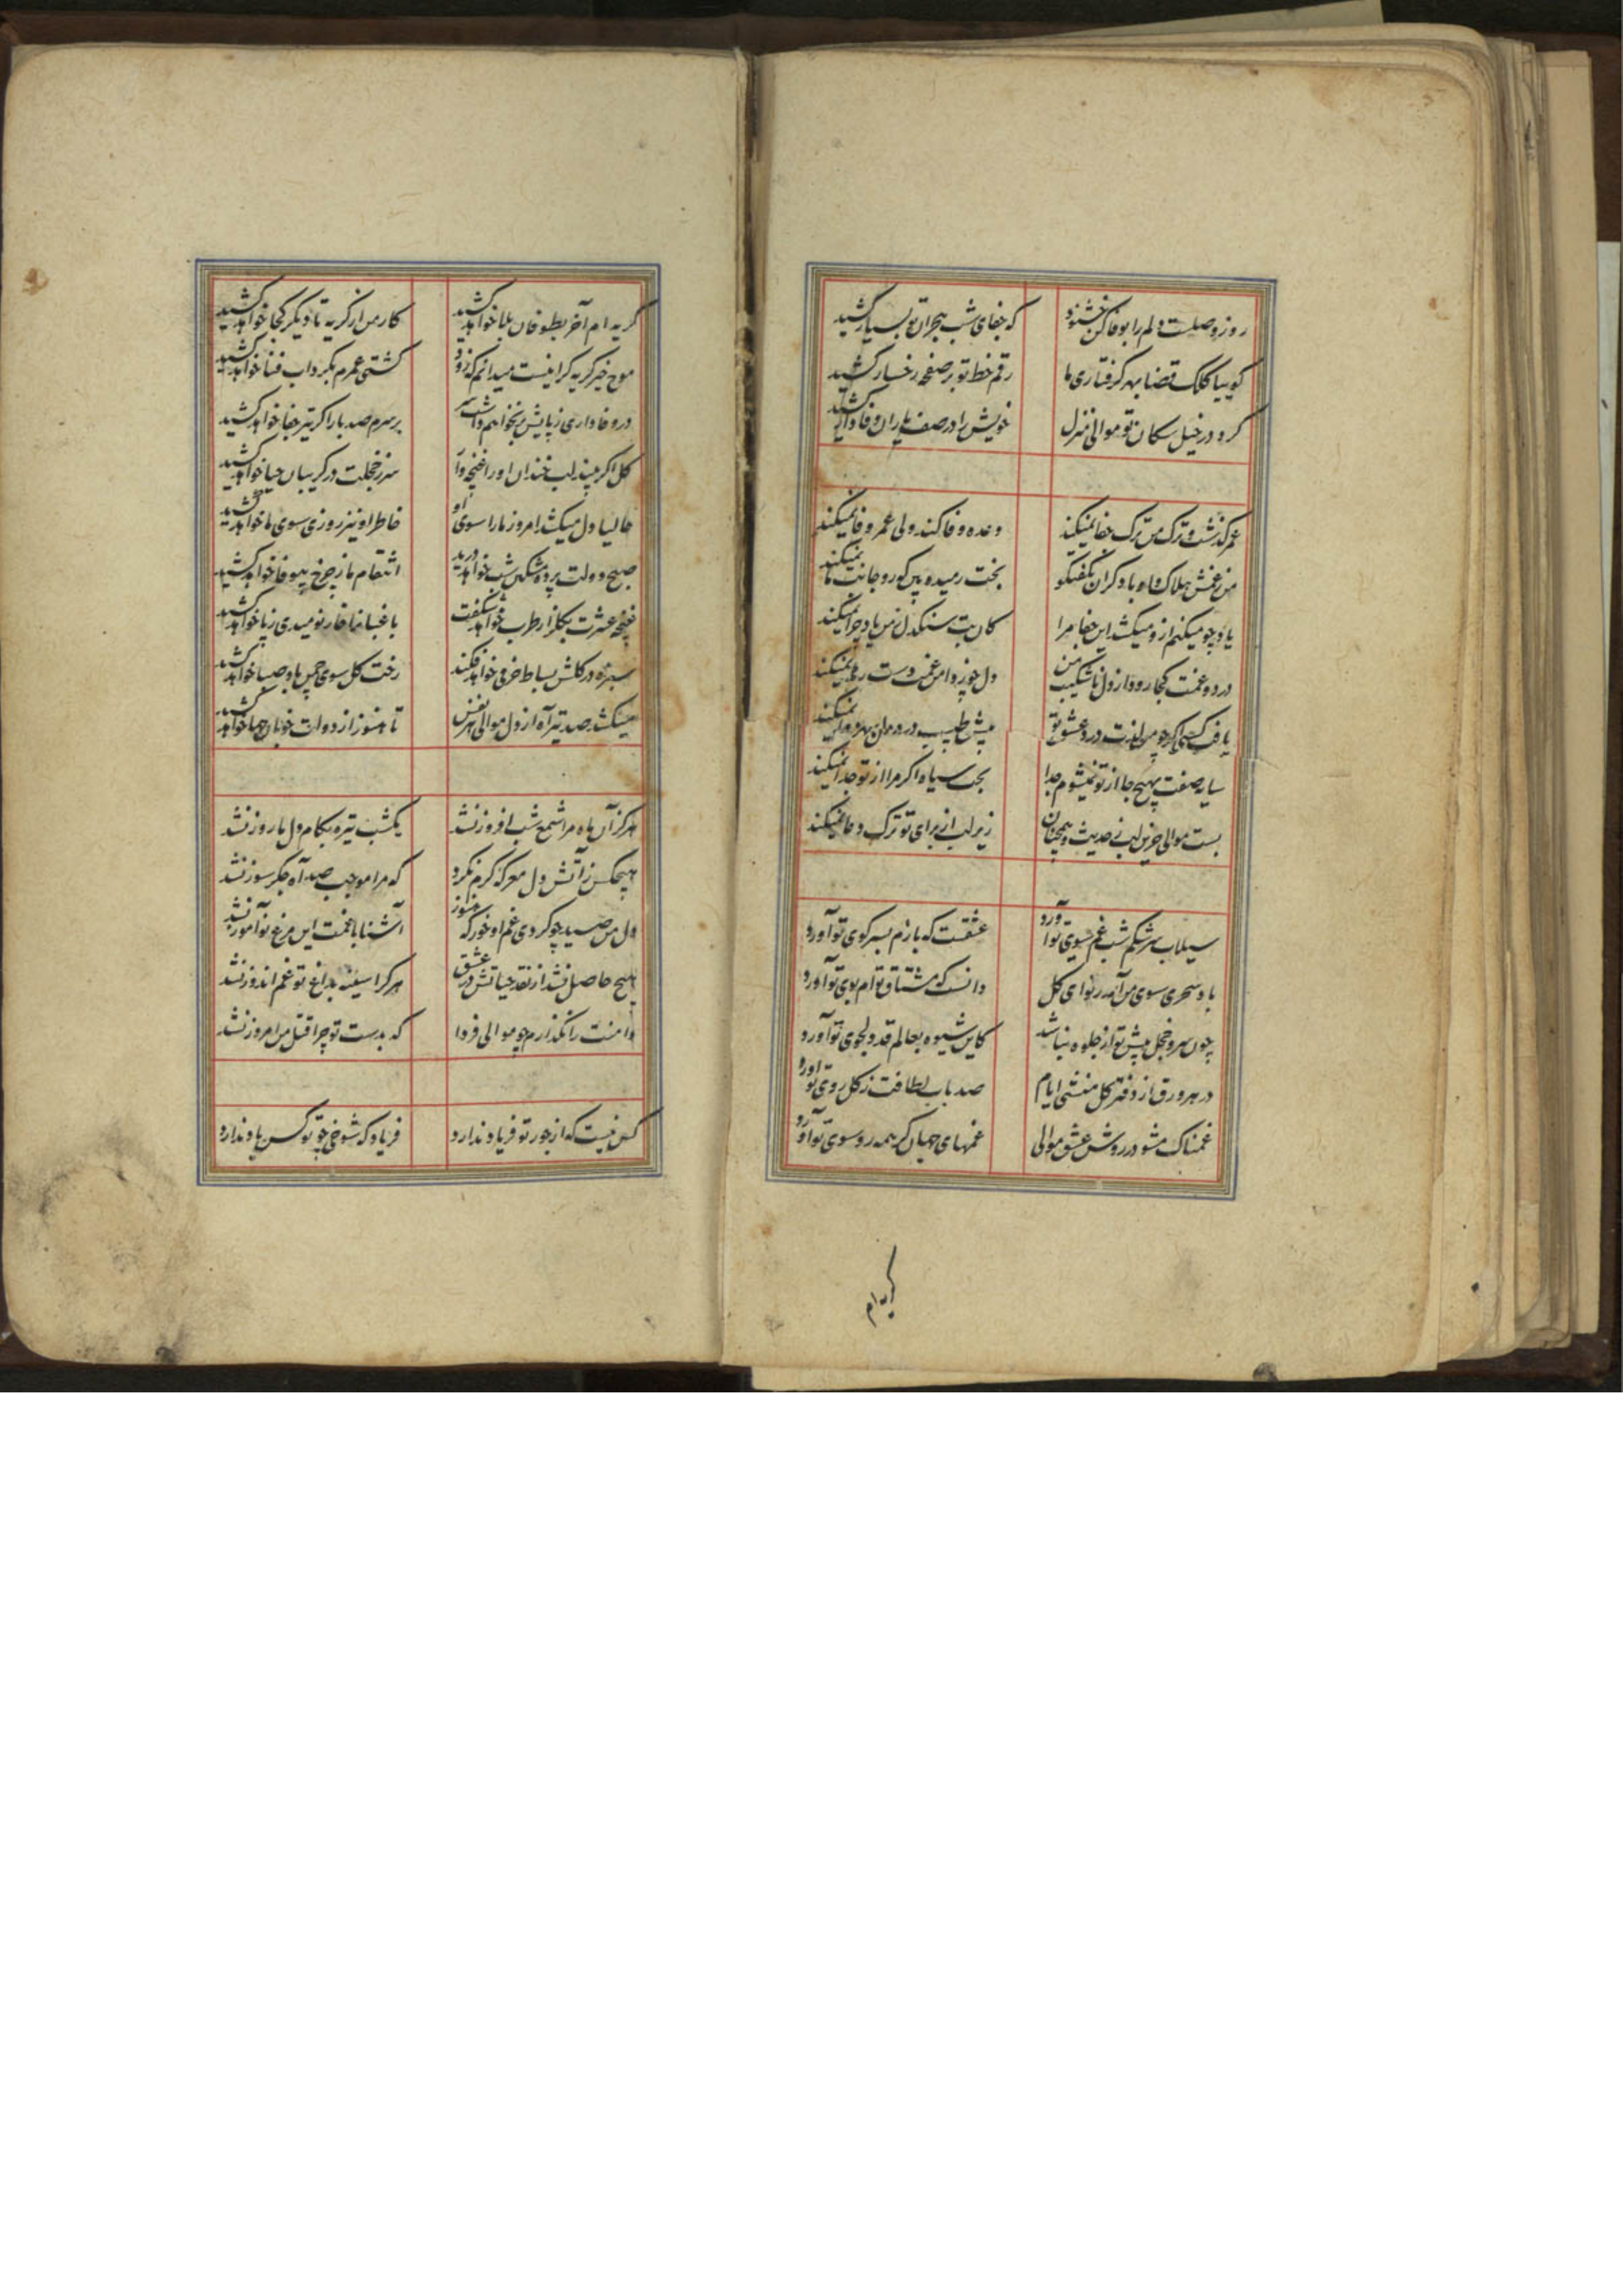 روز وصلت دلم را بوفا کن خشنود که جفای شب هجران تو بسیار کشید
کوییا کلک قضا بهر کرفتاری ما رقم خط تو بر صفحه رخسار کشید
کرد در خیل سکان تو موالی منزل خویش را در صف یاران وفادار کشید
عمر کذشت و ترک من ترک جفا نمیکند وعده وفا کند ولی عمر وفا نمیکند
من ز غمش هلاک و او با دکران بگفتکو بخت رمیده بین که رو جانب ما نمیکند
یاد چو میکنم ازو میکشد این جفا مرا کان بت سنکدل ز من یاد چرا نمیکند
درد و غمت کجا رود از دل ناشکیب من دل چو ز دامن غمت دست رها نمیکند
یافت کسی که چو من لذت درد عشق تو پیش طبیب درد دل بهر دوا نمیکند
سایه صفت بهیچ جا از تو نمیشوم جدا بخت سیاه اکر مرا از تو جدا نمیکند
بست موالی حزین لب ز حدیث و همچنان زیر لب از برای تو ترک دعا نمیکند
سیلاب سرشکم شب غم سوی تو آورد عشقت که بازم بسر کوی تو آورد
باد سحری سوی من آمد ز تو ای کل دانست که مشتاق توام بوی تو آورد
چون سرو خجل پیش تو از جلوه نباشد کاین شیوه بعالم قد دلجوی تو آورد
در هر ورق از دفتر کل منشی ایام صد باب لطافت ز کل روی تو آورد
غمناک مشو در روش عشق موالی غمهای جهان کر همه رو سوی تو آورد
کریه ام
کریه ام آخر بطوفان بلا خواهد کشید کار من از کریه تا دیکر کجا خواهد کشید
موج خیز کریه کر اینست میدانم که زود کشتی عمرم بکرداب فنا خواهد کشید
در وفاداری ز پایش بر نخواهم داشت سر بر سرم صد بار اکر تیر جفا خواهد کشید
کل اکر بیند لب خندان او را غنچه وار سر ز خجلت در کریبان حیا خواهد کشید
حالیا دل میکشد امروز ما را سوی او خاطر او نیز روزی سوی ما خواهد کشید
صبح دولت پرده مشکین شب خواهد درید انتقام ما ز چرخ بیوفا خواهد کشید
غنچه عشرت بکلزار طرب خواهد شکفت باغبان ما خار نومیدی ز پا خواهد کشید
سبزه در کلشن بساط خرمی خواهد فکند رخت کل سوی چمن باد صبا خواهد کشید
میکشد صد تیر آه از دل موالی هر نفس تا هنوز از دولت خوبان چها خواهد کشید
هرکز آن ماه مرا شمع شب افروز نشد یکشب تیره بکام دل ما روز نشد
هیچکس ز آتش دل معرکه کرم نکرد که مرا موجب صد آه جکر سوز نشد
دل من صید چو کردی غم او خور که هنوز آشنا با غمت این مرغ نوآموز نشد
هیچ حاصل نشد از نقد حیاتش در عشق هر کرا سینه بداغ تو غم اندوز نشد
دامنت را نکذارم چو موالی فردا که بدست تو چرا قتل من امروز نشد
کس نیست که از جور تو فریاد ندارد فریاد که شوخی چو تو کس یاد ندارد